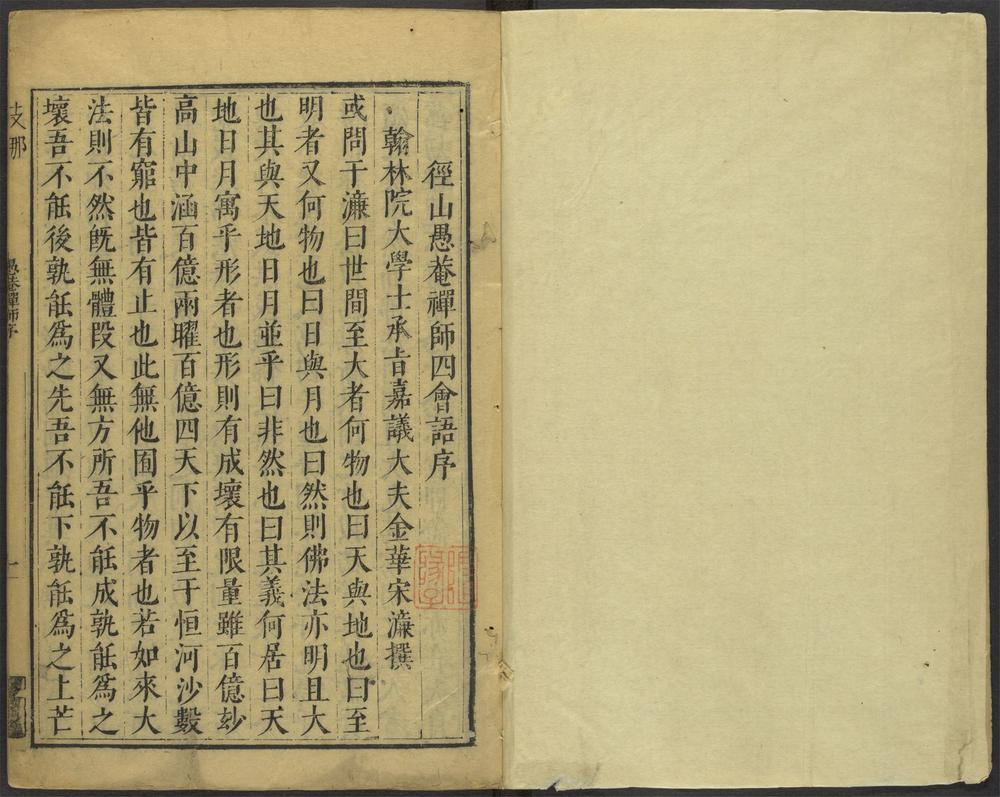 徑山愚菴禪師四會語序
翰林院大學士承旨嘉議大夫金華宋濂撰
或問于濂曰世間至大者何物也曰天與地也曰至
明者又何物也曰日與月也曰然則佛法亦明且大
也其與天地日月並乎曰非然也曰其義何居曰天
地日月寓乎形者也形則有成壞有限量雖百億妙
高山中涵百億兩曜百億四天下以至于恒河沙數
皆有窮也皆有止也此無他囿乎物者也若如來大
法則不然既無體段又無方所吾不能成孰能為之
壞吾不能後孰能為之先吾不能下孰能為之上芒
支那
愚菴禪師序
一